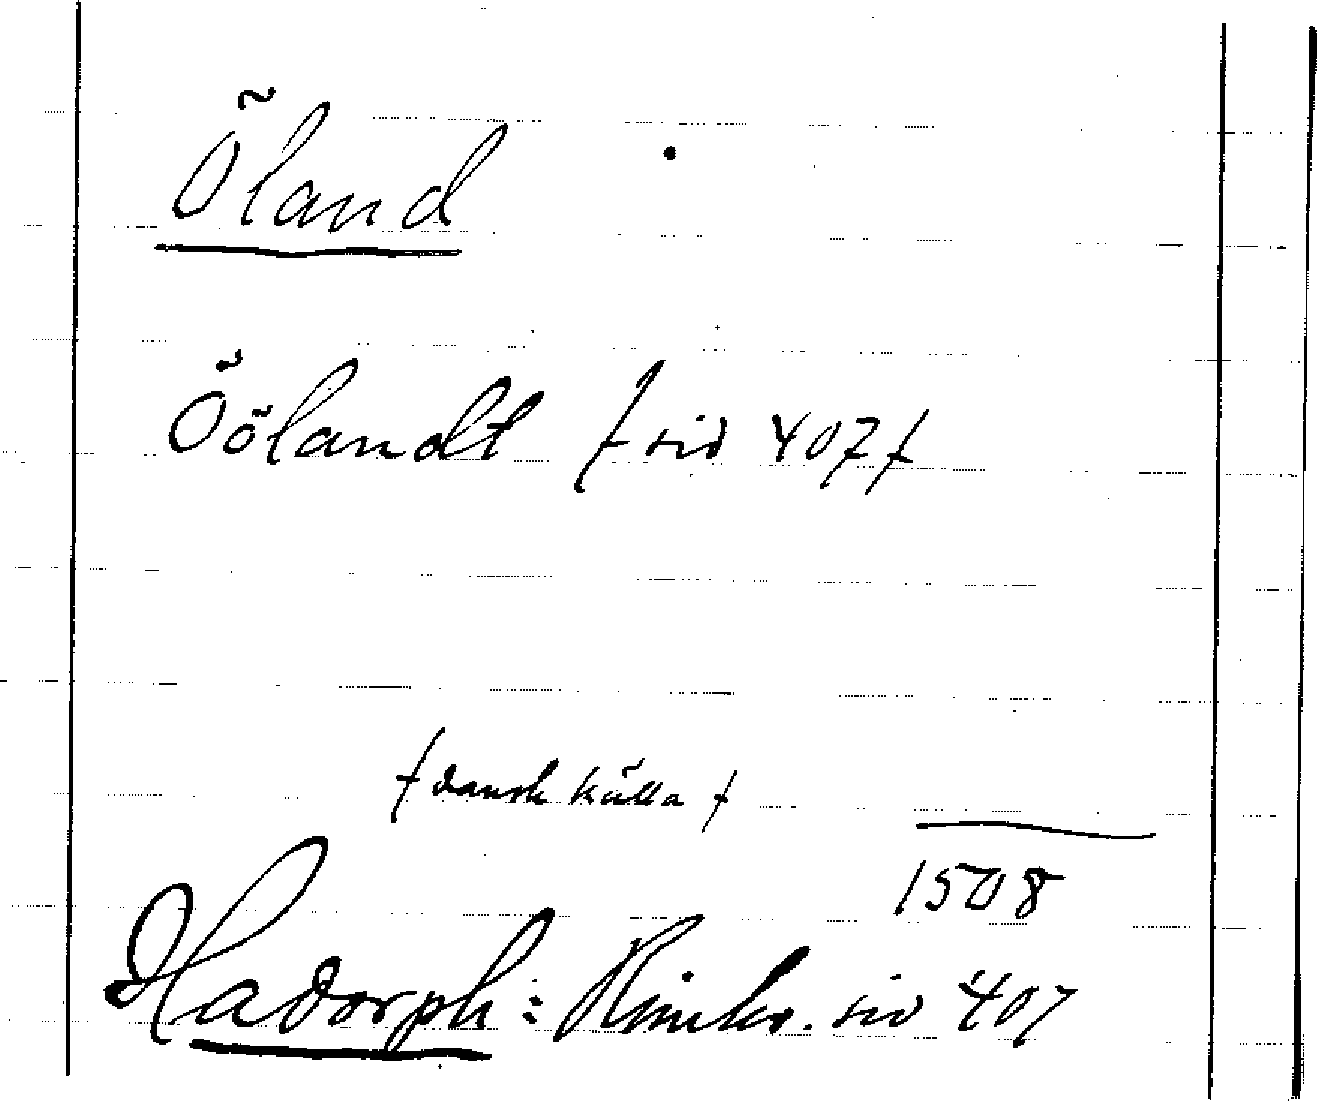 Öland
Öölandt / sid 407 /
/ dansk källa /
1508
Hadorph: Rimkr. sid 407